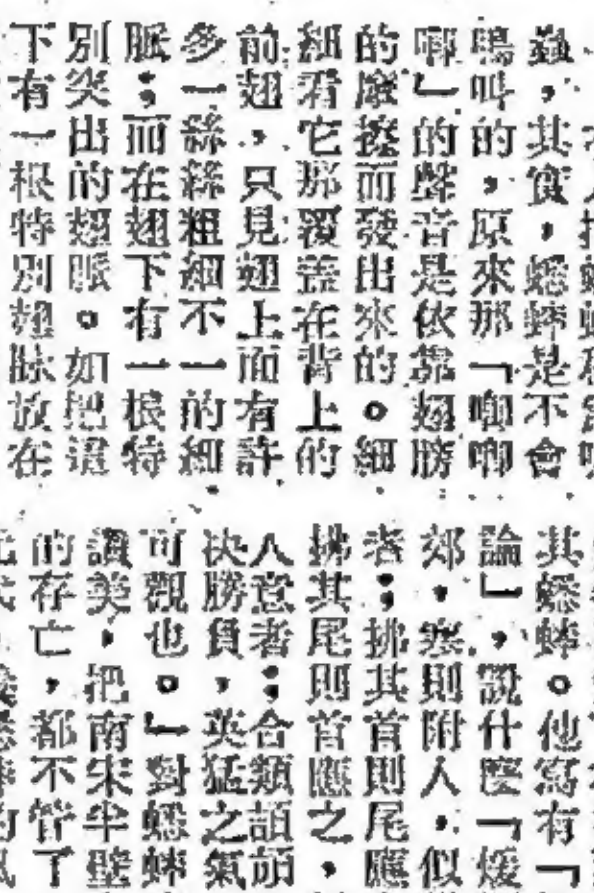 蟲,其實,蟋蟀是不會
鳴叫的,原來那「唧唧
唧」的聲音是依靠翅膀
的摩擦而發出來的。細
細看它那覆蓋在背上的
前翅,只見翅上面有許
多一絲絲粗細不一的細
脈;而在翅下有一根特
別突出的翅脈。如把這
下有一根特別翅脉放在
其蟋蟀。他寫有「
論」,說什麼「煖
郊,寒則附人,似
者;拂其首則尾應
拂其尾則首應之,
人意者;合類頡頏
决勝負,英猛之氣
可觀也。」對蟋蟀
讚美,把南宋半壁
的存亡,都不管了